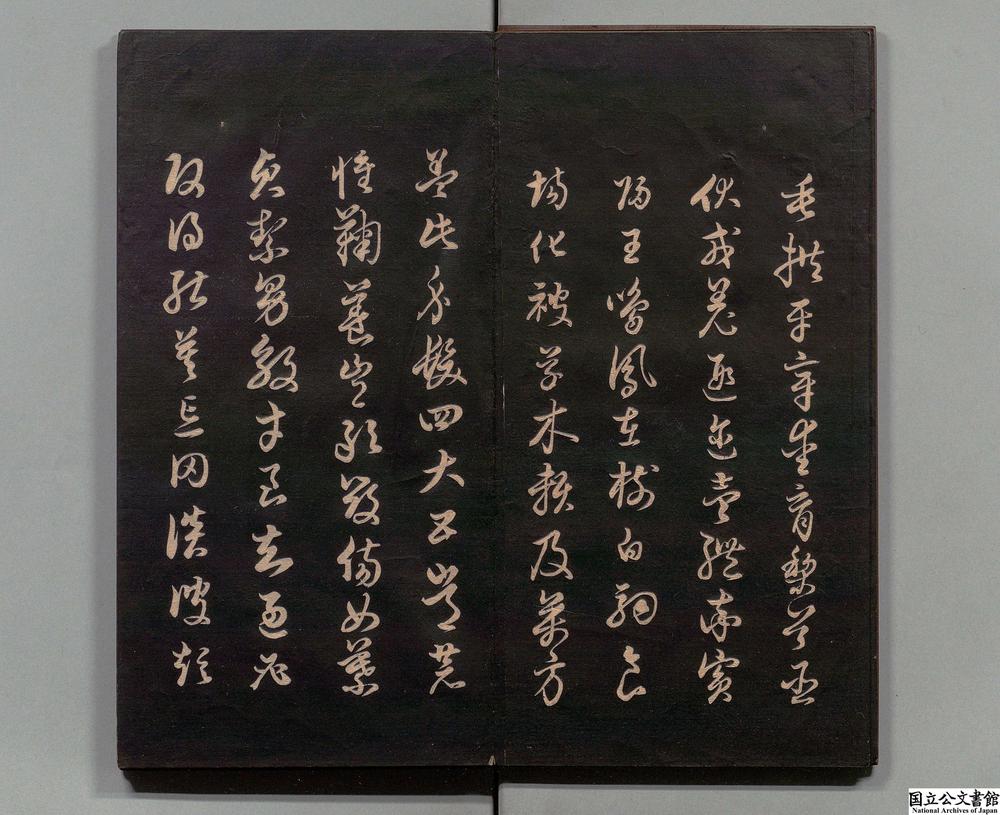 垂拱平章愛育黎首臣
伏戎羌遐邇壹體率賓
歸王鳴鳳在樹白駒食
場化被草木賴及萬方
蓋此身髮四大五常恭
惟鞠養豈敢毀傷女慕
貞絜男效才良知過必
改得能莫忘罔談彼短
国立公文書館
National Archives of Japan